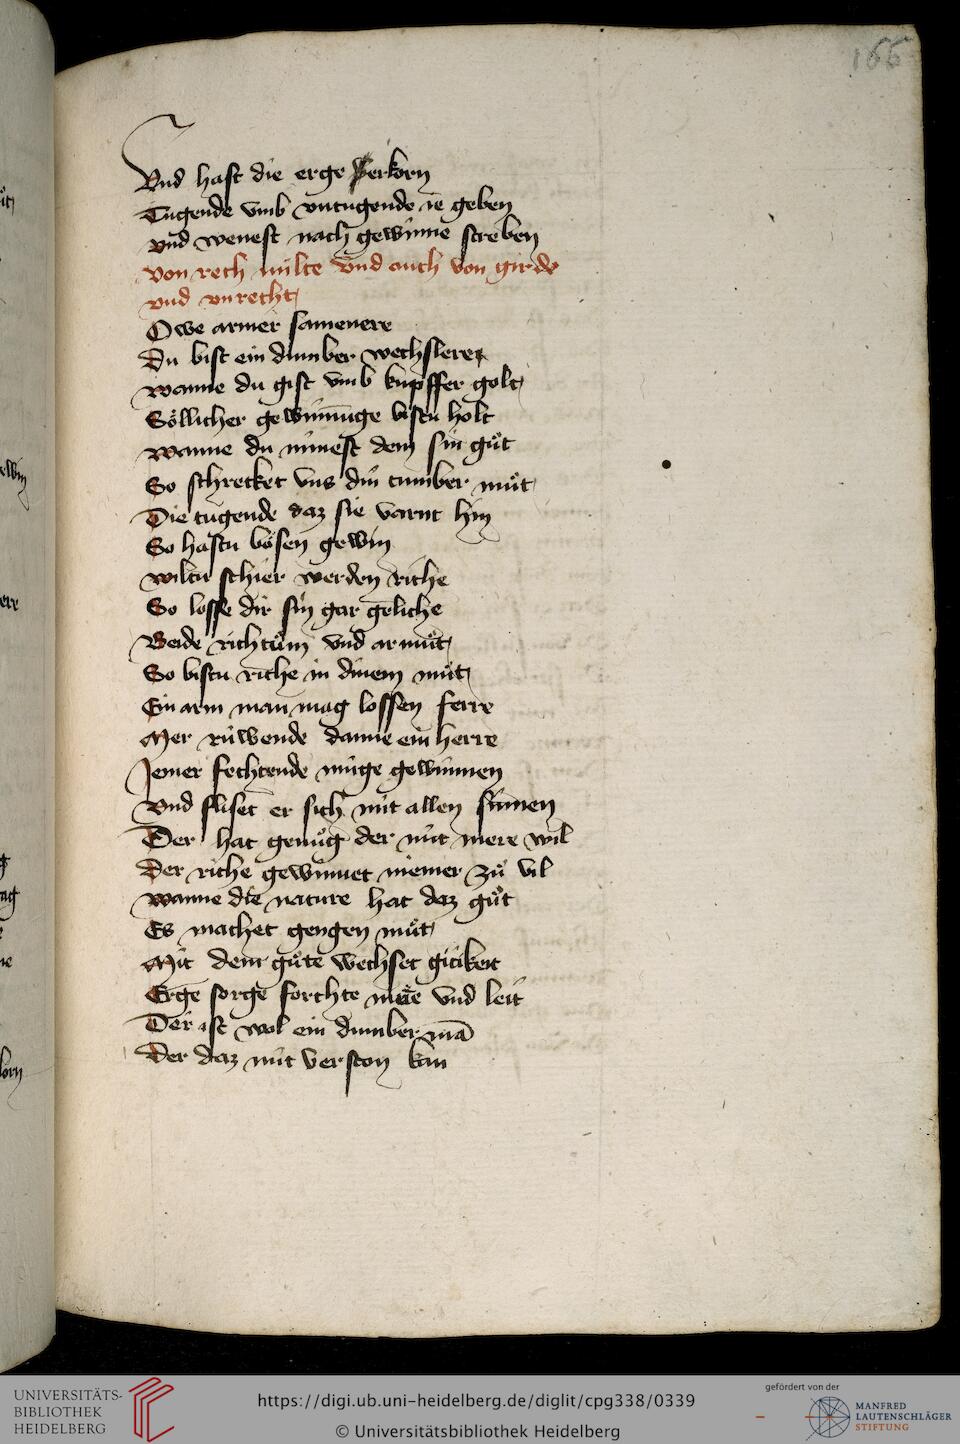 166
Vnd hast die erge verkorn
Tugende vmb vntugende ie geben
vnd wenest nach gewinne streben
von rech milte vnd auch von girde
vnd vnrecht
Owe armer samenere
Du bist ein dumber wechslerer
wanne du gist vmb kupffer golt
Söllicher gewinnunge bistu holt
wanne du nimest dem sin guͦt
So schrecket vns din tumber muͦt
Die tugende daz sie varnt hin
So hastu bösen gewin
wiltu schier werden riche
So losse dir sin gar geliche
Beide richtuͦm vnd armuͦt
So bistu riche in dinem muͦt
Ein arm man mag lossen ferre
Mer ruwende danne ein herre
Jemer fechtende muge gewinnen
Vnd fliset er sich mit allen sinnen
Der hat genuͦg der nit mere wil
Der riche gewinnet niemer zuͦ vil
wanne die nature hat daz guͦt
Es machet gengen muͦt
Mit dem guͦte wechset gitikeit
Erge sorge forchte muͦe vnd leit
Der ist wol ein dumber mā
Der daz nit verston kan
UNIVERSITÄTS-
BIBLIOTHEK
HEIDELBERG
https://digi.ub.uni-heidelberg.de/diglit/cpg338/0339
© Universitätsbibliothek Heidelberg
gefördert von der
MANFRED
LAUTENSCHLÄGER
STIFTUNG